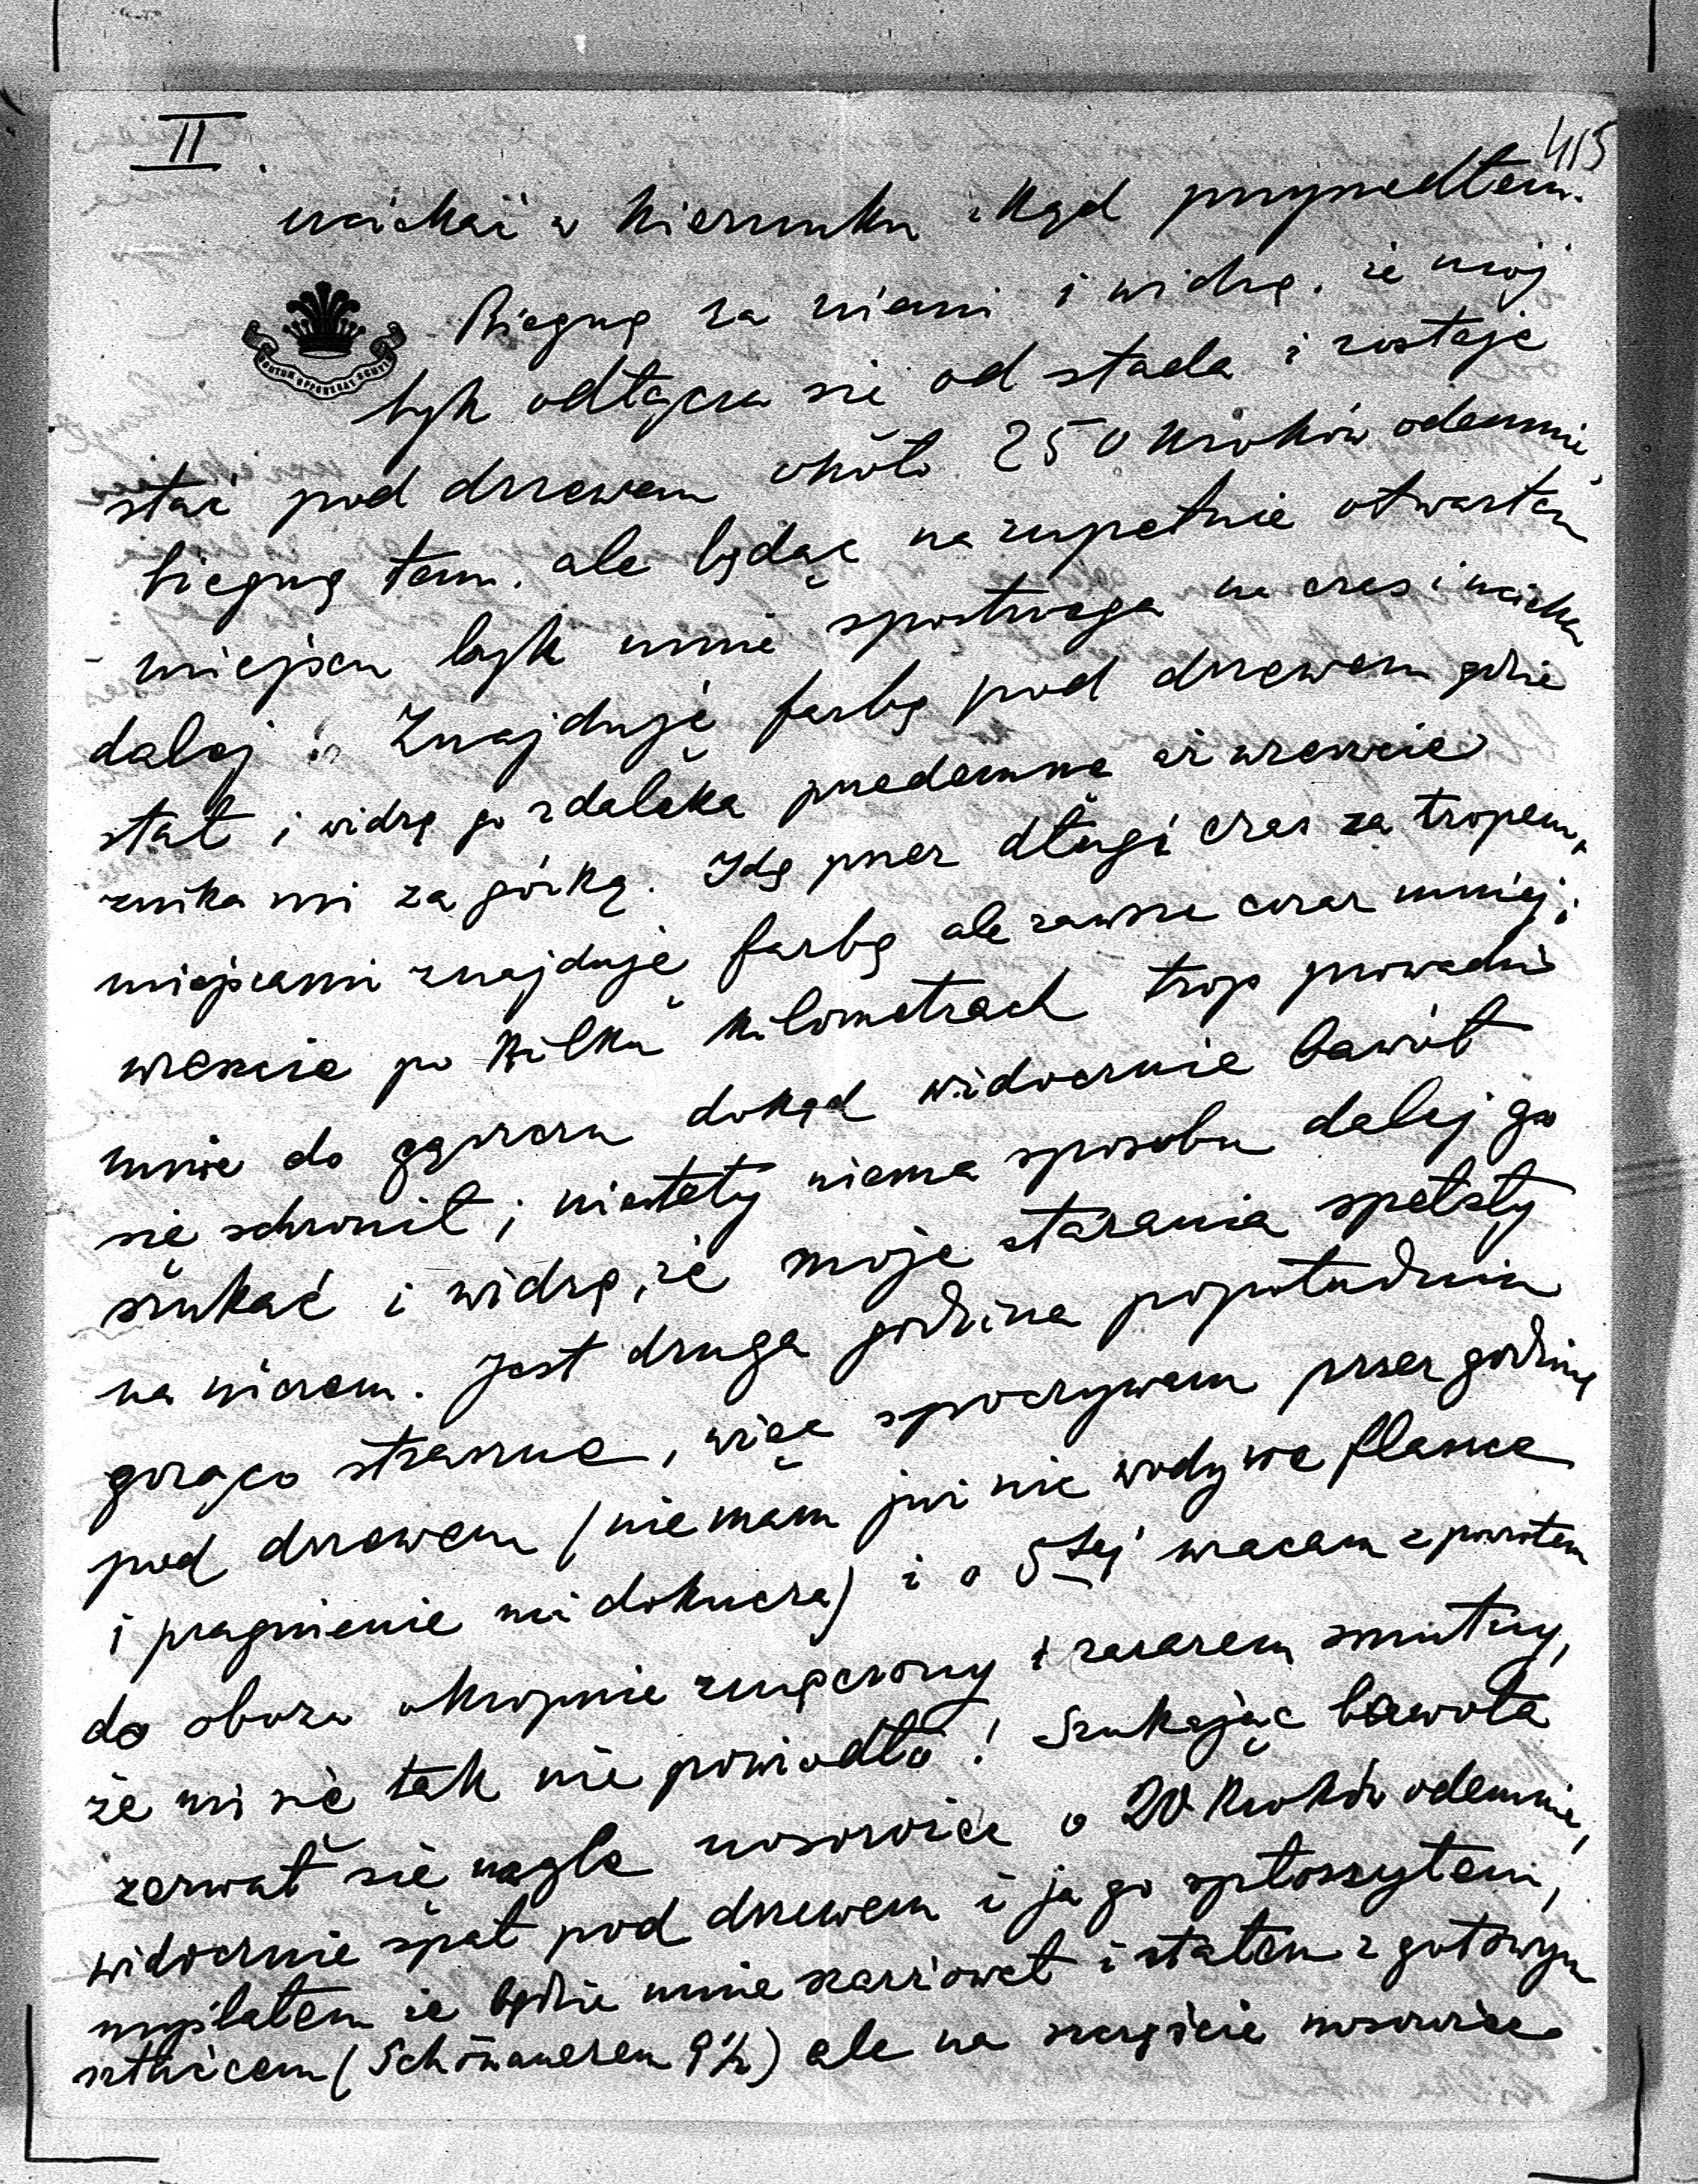 II.
415
uciekać w kierunku skąd przyszedłem.
Biegnę za niemi i widzę, że mój
byk odłącza się od stada i zostaje
stać pod drzewem około 250 kroków odemnie,
biegnę tam, ale będąc na zupełnie otwartem
miejscu byk mnie spostrzega na czas i ucieka
dalej. Znajduję farbę pod drzewem gdzie
stał i widzę go zdaleka przedemną aż wreszcie
znika mi za górką. Idę przez długi czas za tropem,
miejscami znajduję farbę ale zawsze coraz mniej;
wreszcie po kilku kilometrach trop prowadzi
mnie do gąszczu dokąd widocznie bawół
się schronił; niestety niema sposobu dalej go
szukać i widzę, że moje starania spełzły
na niczem. Jest druga godzina popołudniu
gorąco straszne, więc spoczywam przez godzinę
pod drzewem (nie mam już nic wody we flaszce
i pragnienie mi dokucza) i o 5tej wracam z powrotem
do obozu okropnie zmęczony i zarazem smutny,
że mi się tak nie powiodło! Szukając bawoła
zerwał się nagle nosorożec o 20 kroków odemnie,
widocznie spał pod drzewem i ja go spłoszyłem;
myślałem że będzie mnie szarżował i stałem z gotowym
sztućcem (Schönauerem 9½) ale na szczęście nosorożec